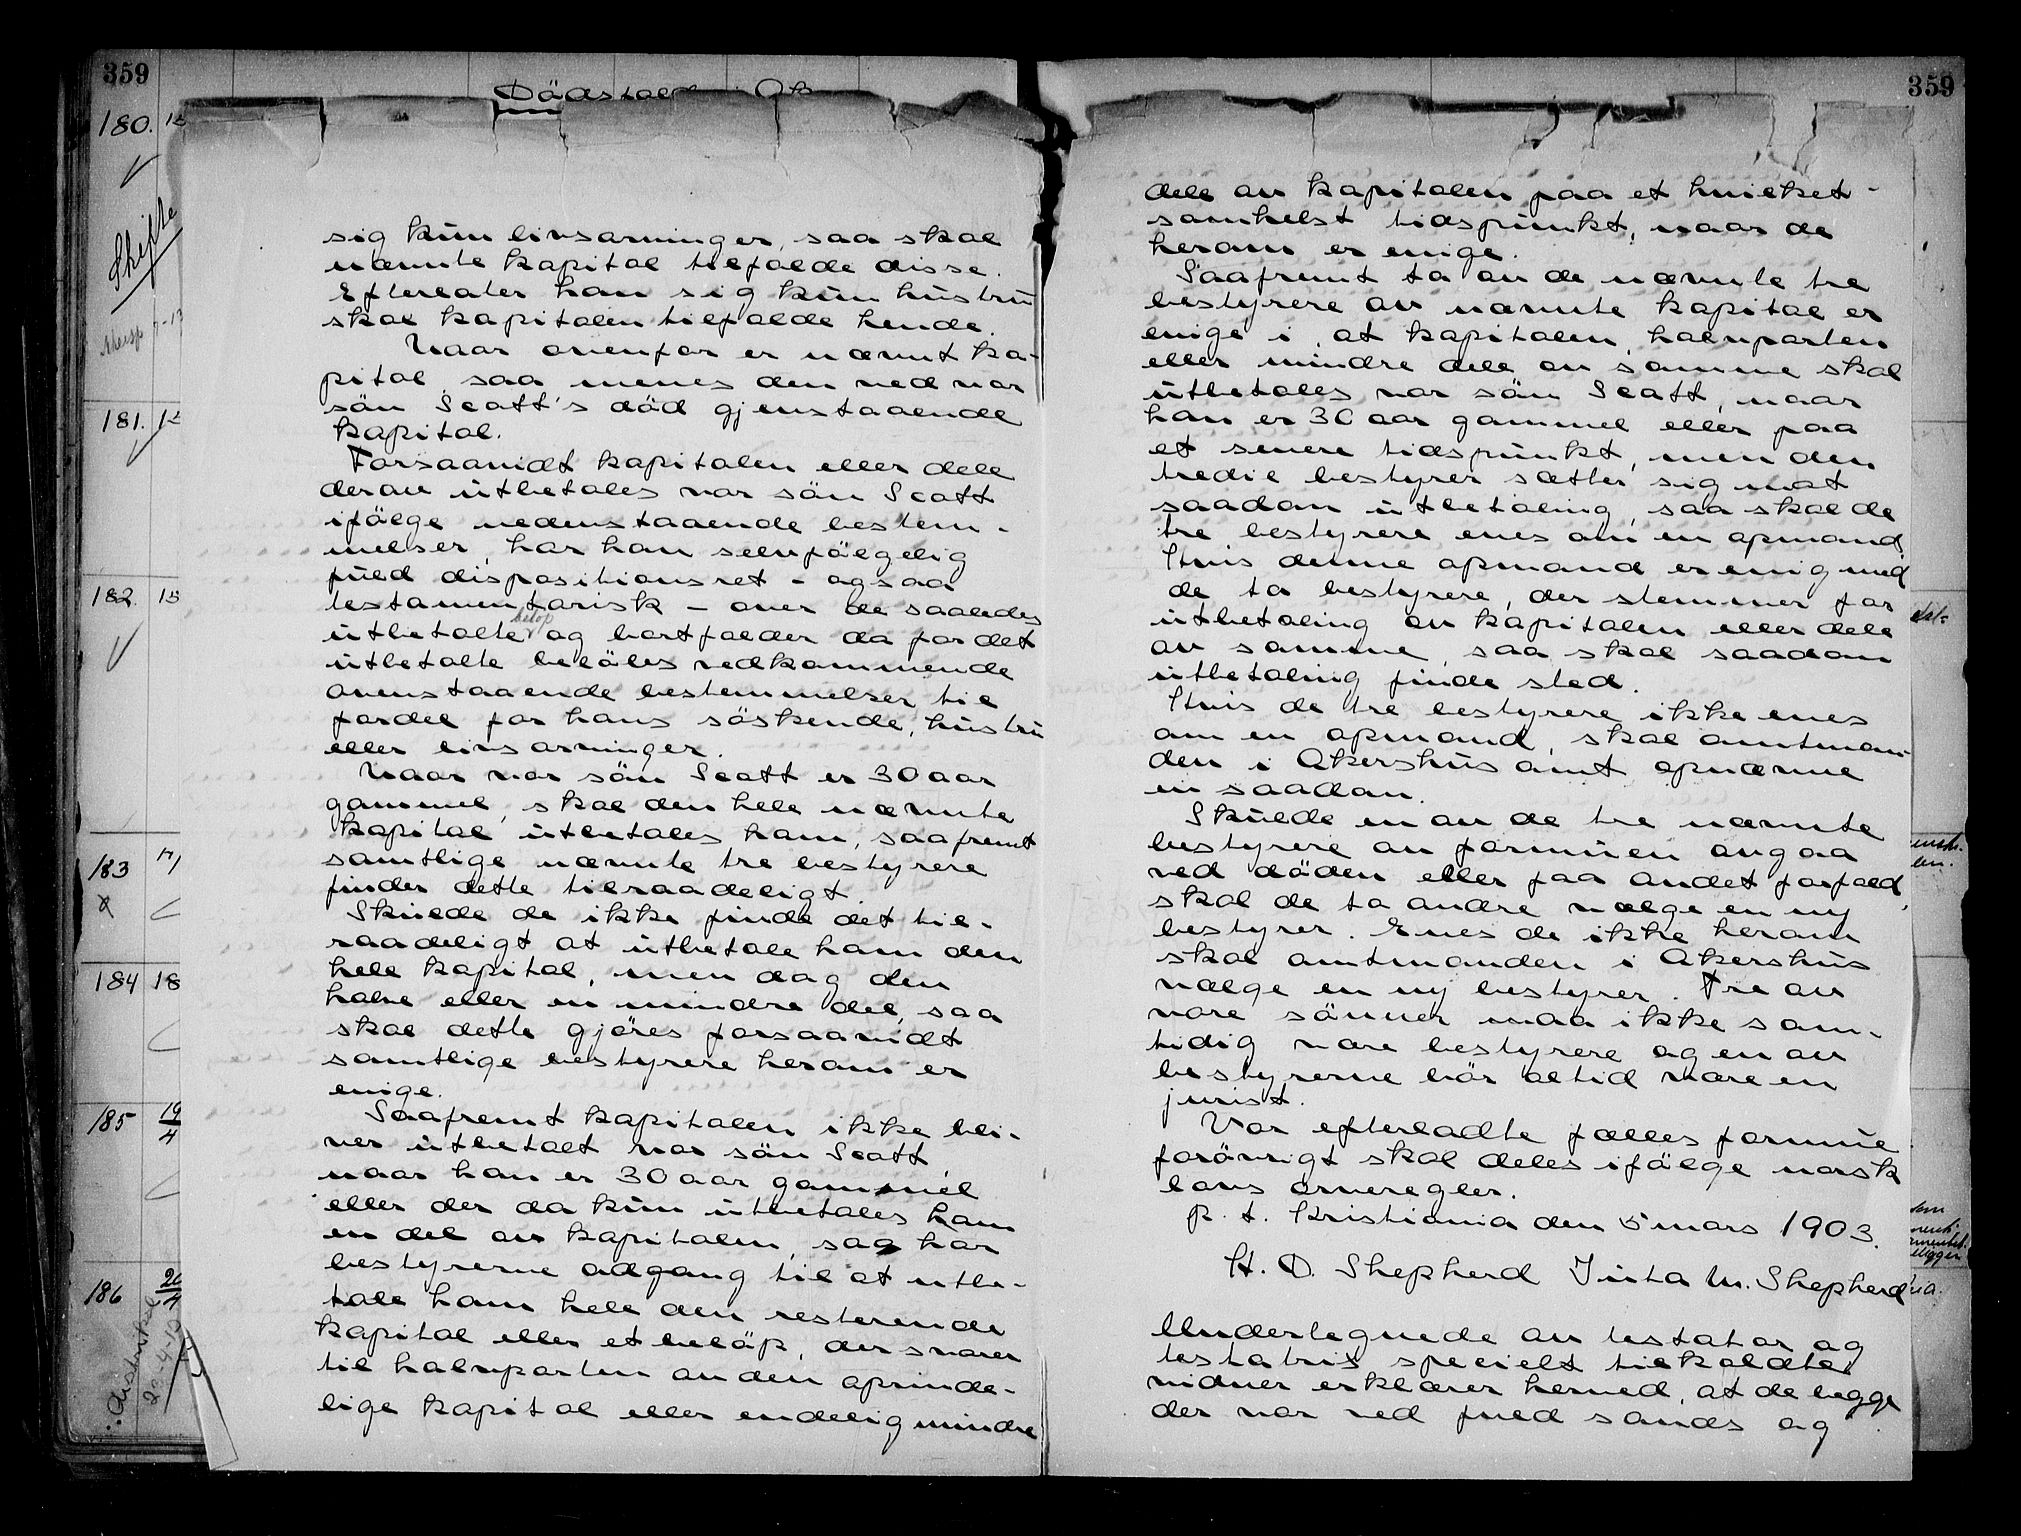 359
Dödsfald
180. 12
Skifte
181. 12
182. 15
183 17/
184 18
185 19/4
186 20/4
sig kun livsarvinger, saa skal
nævnte kapital tilfalde disse.
Efterlater han sig kun hustru
skal kapitalen tilfalde hende.
Naar ovenfor er nævnt ka-
pital, saa menes den ved vor
sön Scott's död gjenstaaende
kapital.
Forsaavidt kapitalen eller dele
derav utbetales vor sön Scott
ifölge nedenstaaende bestem-
melser, har han selvfölgelig
fuld dispositionsret - ogsaa
testamentarisk - over de saaledes
utbetalte belöp og bortfalder da for det
utbetalte belöbes vedkommende
ovenstaaende bestemmelser til
fordel for hans söskende, hustru
eller livsarvinger.
Naar vor sön Scott er 30 aar
gammel, skal den hele nævnte
kapital utbetales ham, saafremt
samtlige nævnte tre bestyrere
finder dette tilraadeligt.
Skulde de ikke finde det til-
raadeligt at utbetale ham den
hele kapital, men dog den
halve eller en mindre del, saa
skal dette gjöres forsaavidt
samtlige bestyrere herom er
enige.
Saafremt kapitalen ikke bli-
ver utbetalt vor sön Scott,
naar han er 30 aar gammel
eller der da kun utbetales ham
en del av kapitalen, saa har
bestyrerne adgang til at utbe-
tale ham hele den resterende
kapital eller et belöp, der svarer
til halvparten av den oprinde-
lige kapital eller endelig mindre
359
dele av kapitalen paa et hvilket-
somhelst tidspunkt, naar de
herom er enige.
Saafremt to av de nævnte tre
bestyrere av nævnte kapital er
enige i, at kapitalen, halvparten
eller mindre dele av samme skal
utbetales vor sön Scott, naar
han er 30 aar gammel eller paa
et senere tidspunkt, men den
tredie bestyrer sætter sig mot
saadan utbetaling, saa skal de
tre bestyrere enes om en opmand.
Hvis denne opmand er enig med
de to bestyrere, der stemmer for
utbetaling av kapitalen eller dele
av samme, saa skal saadan
utbetaling finde sted.
Hvis de tre bestyrere ikke enes
om en opmand, skal amtman-
den i Akershus amt opnævne
en saadan.
Skulde en av de tre nævnte
bestyrere av formuen avgaa
ved döden eller faa andet forfald,
skal de to andre vælge en ny
bestyrer. Enes de ikke herom
skal amtmanden i Akershus
vælge en ny bestyrer. Tre av
vore sönner maa ikke sam-
tidig være bestyrere og en av
bestyrerne bör altid være en
jurist.
Vor efterladte fælles formue
forövrigt skal deles ifölge norsk
lovs arveregler.
p. t. Kristiania den 5 mars 1903.
H. D. Shepherd Juta M. Shepherd
Undertegnede av testator og
testatrix specielt tilkaldte
vidner erklærer herved, at de begge
der var ved fuld sands og